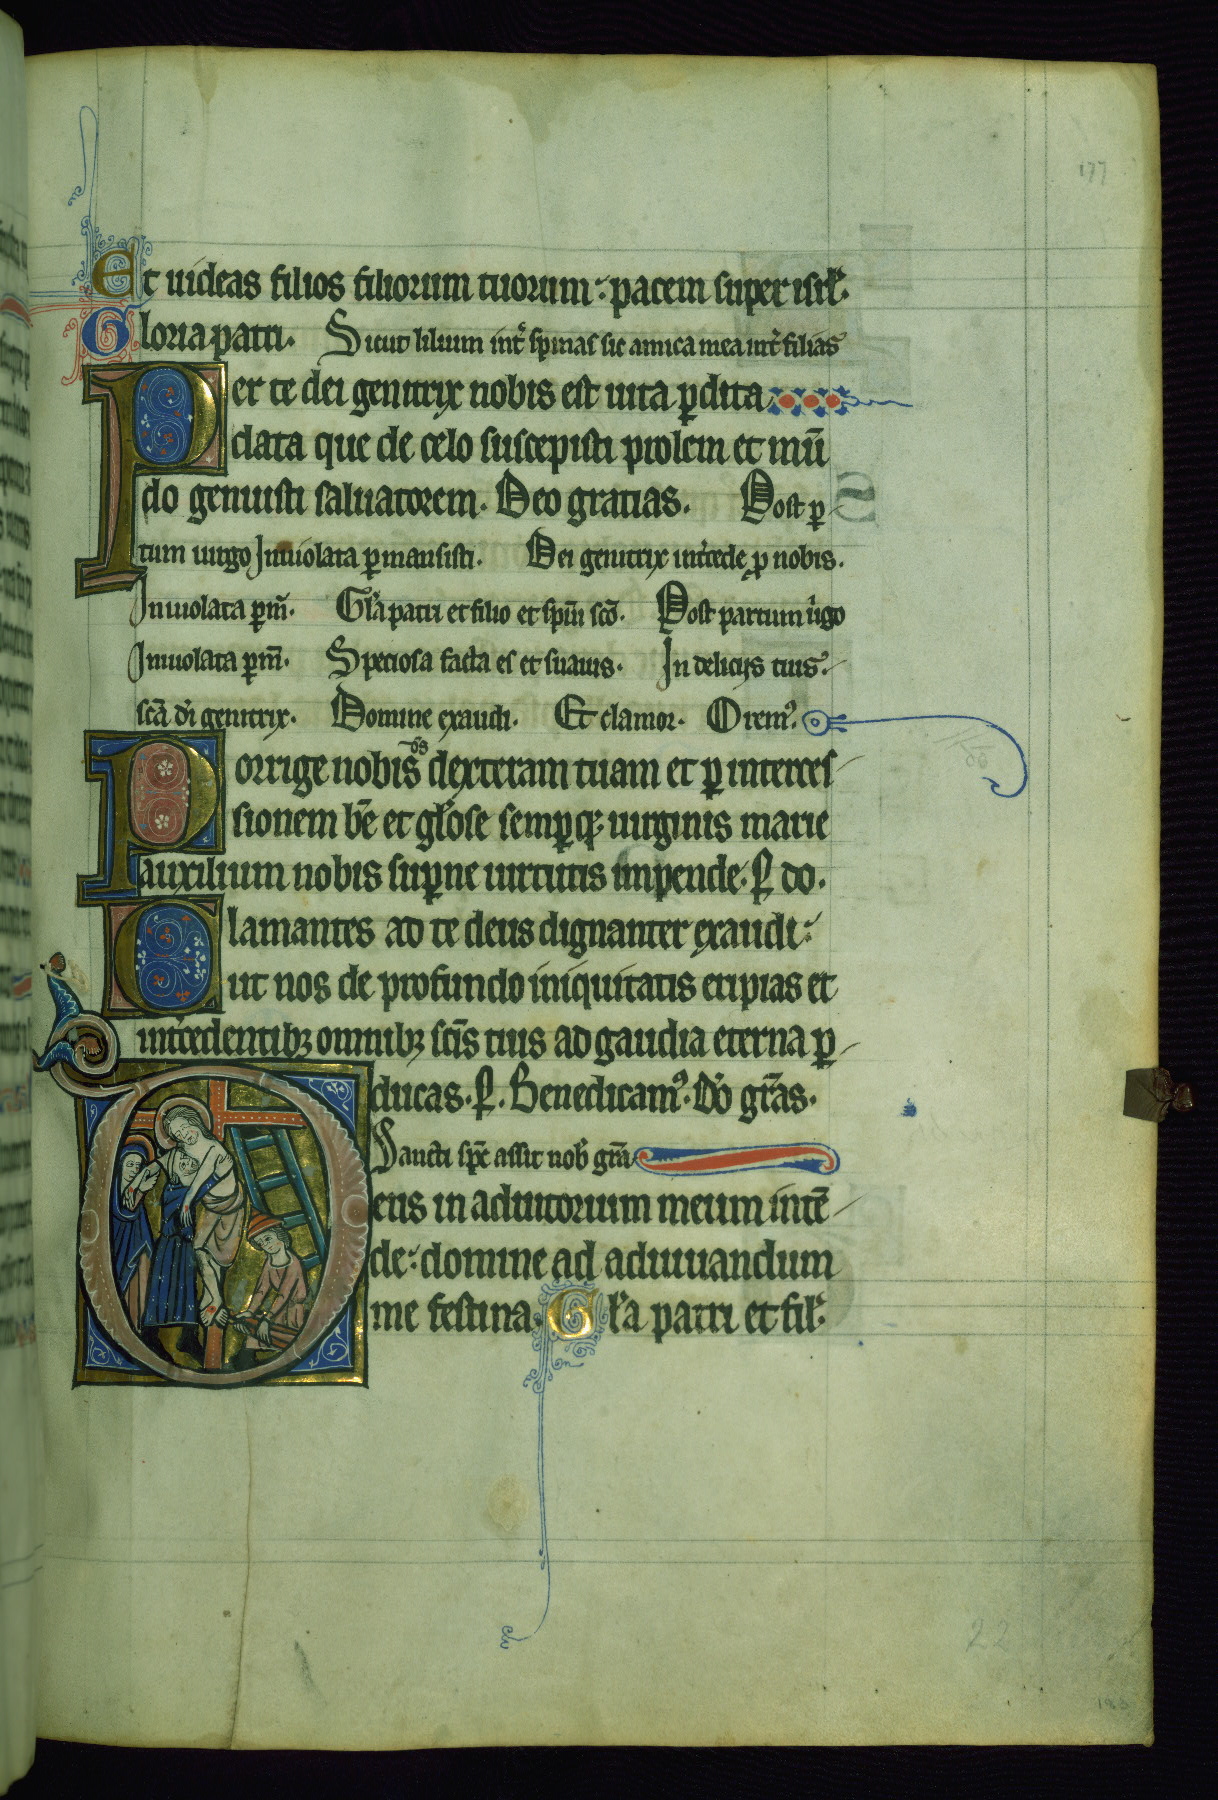 177
Et uideas filios filiorum tuorum: pacem super isrł.
Gloria patri. Sicut lilium int̾ spinas sic amica mea int̾ filias
Per te dei genitrix nobis est uita ꝑdita
data que de celo suscepisti prolem et mū
do genuisti saluatorem. Deo gratias. Post ꝑ
tum uirgo Inuiolata ꝑmansisti. Dei genitrix int̾cede ꝓ nobis.
Inuiolata ꝑm̄. Gła patri et filio et spiū sc̄o. Post partum uͥgo
Inuiolata ꝑm̄. Speciosa facta es et suauis. In delicijs tuis
sc̄a di genitrix. Domine exaudi. Et clamor. Oremꝰ.
Porrige nobis ds̄ dexteram tuam et ꝑ interces
sionem bē et głose sempꝑqꝫ uirginis marie
auxilium nobis supꝑne uirtutis impende. ꝑ do.
Clamantes ad te deus dignanter exaudi:
ut nos de profundo iniquitatis eripias et
int̾cedentibꝫ omnibꝫ sc̄is tuis ad gaudia eterna ꝑ
ducas. ꝑ. Benedicamꝰ. Do gr̄as.
Sancti spc̄ assit nob̄ gr̄a
Deus in adiutorium meum intē
de: domine ad adiuuandum
me festina. Gła patri et fil.